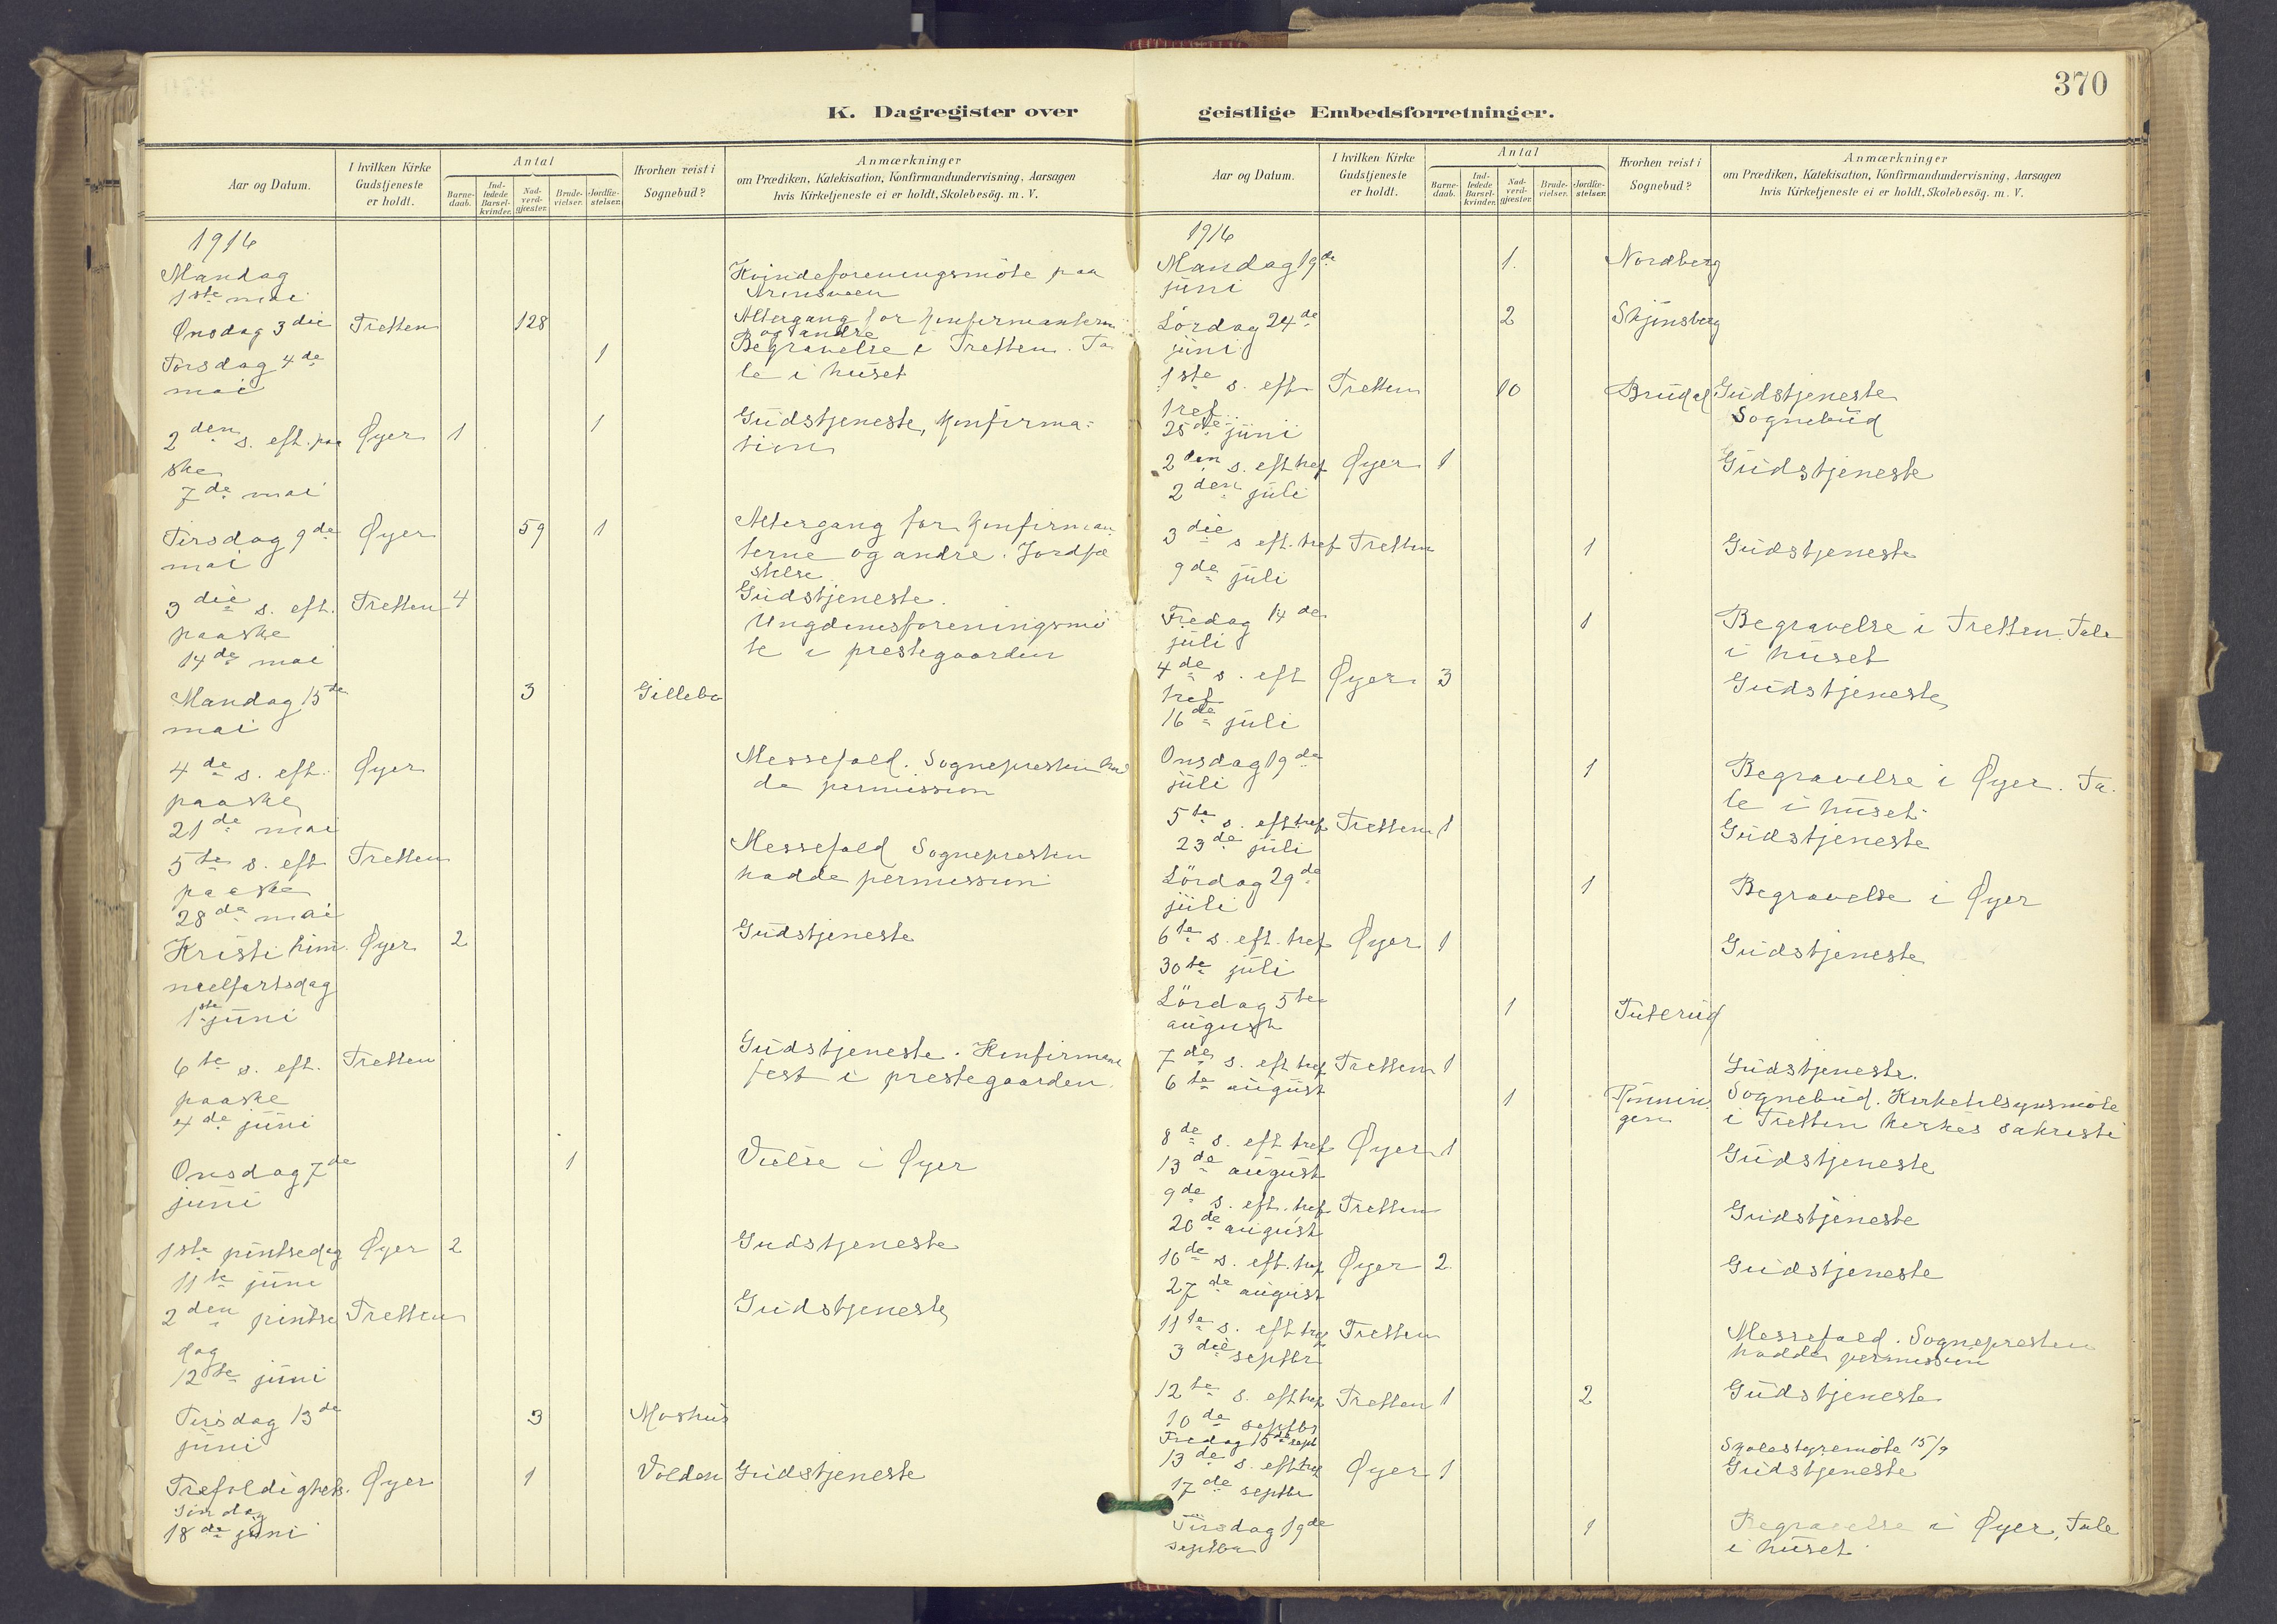 K. Dagregister over
Aar og Datum.
I hvilken Kirke Gudstjeneste er holdt.
Antal
Barne-daab.
Ind-ledede Barsel-kvinder.
Nad-verd-gjæster.
Brude-vielser.
Jordfæ-stelser.
Hvorhen reist i Sognebud?
Anmærkninger
om Prædiken, Katekisation, Konfirmandundervisning, Aarsagen
hvis Kirketjeneste ei er holdt, Skolebesög. m. V.
1916
Mandag Kvindeforeningsmöte paa
1ste mai
Onsdag 3die Tretten 128 Altergang for konfirmanterne
og andre
Torsdag 4de 1 Begravelse i Tretten. Ta
mai le i huset
2den s. eft. paa Øyer 1 1 Gudstjeneste, konfirma-
ske tion
7de mai
Tirsdag 9de Øyer 59 1 Altergang for konfirman
mai terne og andre. Jordfæ
stelse
3die s. eft. Tretten 4 Gudstjeneste.
paaske Ungdomsforeningsmö
14de mai te i prestegaarden
Mandag 15de 3 Gillebo
mai
4de s. eft. Øyer Messefald. Sognepresten had
paaske de permission
21de mai
5te s. eft Tretten Messefald Sognepresten
paaske hadde permission
28de mai
Kristi him. Øyer 2 Gudstjeneste
melfartsdag
1ste juni
6te s. eft. Tretten Gudstjeneste. Konfirmant
paaske fest i prestegaarden.
4de juni
Onsdag 7de 1 Vielse i Øyer
juni
1ste pintsedag Øyer 2 Gudstjeneste
11te juni
2den pintse Tretten Gudstjeneste
dag
12te juni
Tirsdag 13de 3 Moshus
juni
Trefoldigheds. Øyer 1 Volden Gudstjeneste
söndag
18de juni
370
geistlige Embedsforretninger.
Aar og Datum.
I hvilken Kirke Gudstjeneste er holdt.
Antal
Barne-daab.
Ind-ledede Barsel-kvinder.
Nad-verd-gjæster.
Brude-vielser.
Jordfæ-stelser.
Hvorhen reist i Sognebud?
Anmærkninger
om Prædiken, Katekisation, Konfirmandundervisning, Aarsagen
hvis Kirketjeneste ei er holdt, Skolebesög. m. V.
1916
Mandag 19de 1. Nordberg
juni
Lördag 24de 2 Skjønsberg
juni
1ste s. eft Tretten 10 Brudal Gudstjeneste
tref. Sognebud
25de juni
2den s. eft tref Øyer 1 Gudstjeneste
2den juli
3die s eft. tref Tretten 1 Gudstjeneste
9de juli
Fredag 14de 1 Begravelse i Tretten. Tale
juli i huset
4de s. eft Øyer 3 Gudstjeneste
tref
16de juli
Onsdag 19de 1 Begravelse i Øyer. Ta.
juli le i huset.
5te s. eft tref Tretten 1 Gudstjeneste
23de juli
Lördag 29de 1 Begravelse i Øyer
juli
6te s. eft. tref Øyer 1 Gudstjeneste
30te juli
Lördag 5te 1 Tuterud
august
7de s. eft tref Tretten 1 Gudstjeneste.
6te august 1 Rönnin Sognebud. Kirketilsynsmöte
gen i Tretten kirkes sakristi
8de s. eft tref Øyer 1 Gudstjeneste
13de august
9de s. eft. tref Tretten Gudstjeneste
20de august
10de s. eft. tref Øyer 2 Gudstjeneste
27de august
11te s. eft tref Tretten Messefald. Sognepresten
3die septbr hadde permission
12te s. eft tref Tretten 1 2 Gudstjeneste
10de septbr
Fredag 15de sept Skolestyremöte 15/9
13de s. eft tref Øyer 1 Gudstjeneste
17de septbr
Tirsdag 19de 1 Begravelse i Øyer, Tale
septbr i huset